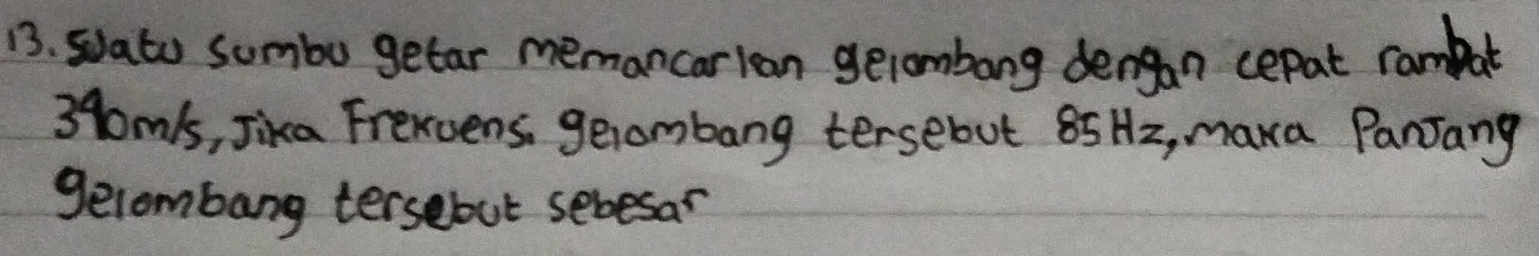 13. Suatu sumbu getar memancarkan gelombang dengan cepat rambat
340m/s, Jika Frekuensi gelombang tersebut 85 Hz, maka Panjang
gelombang tersebut sebesar